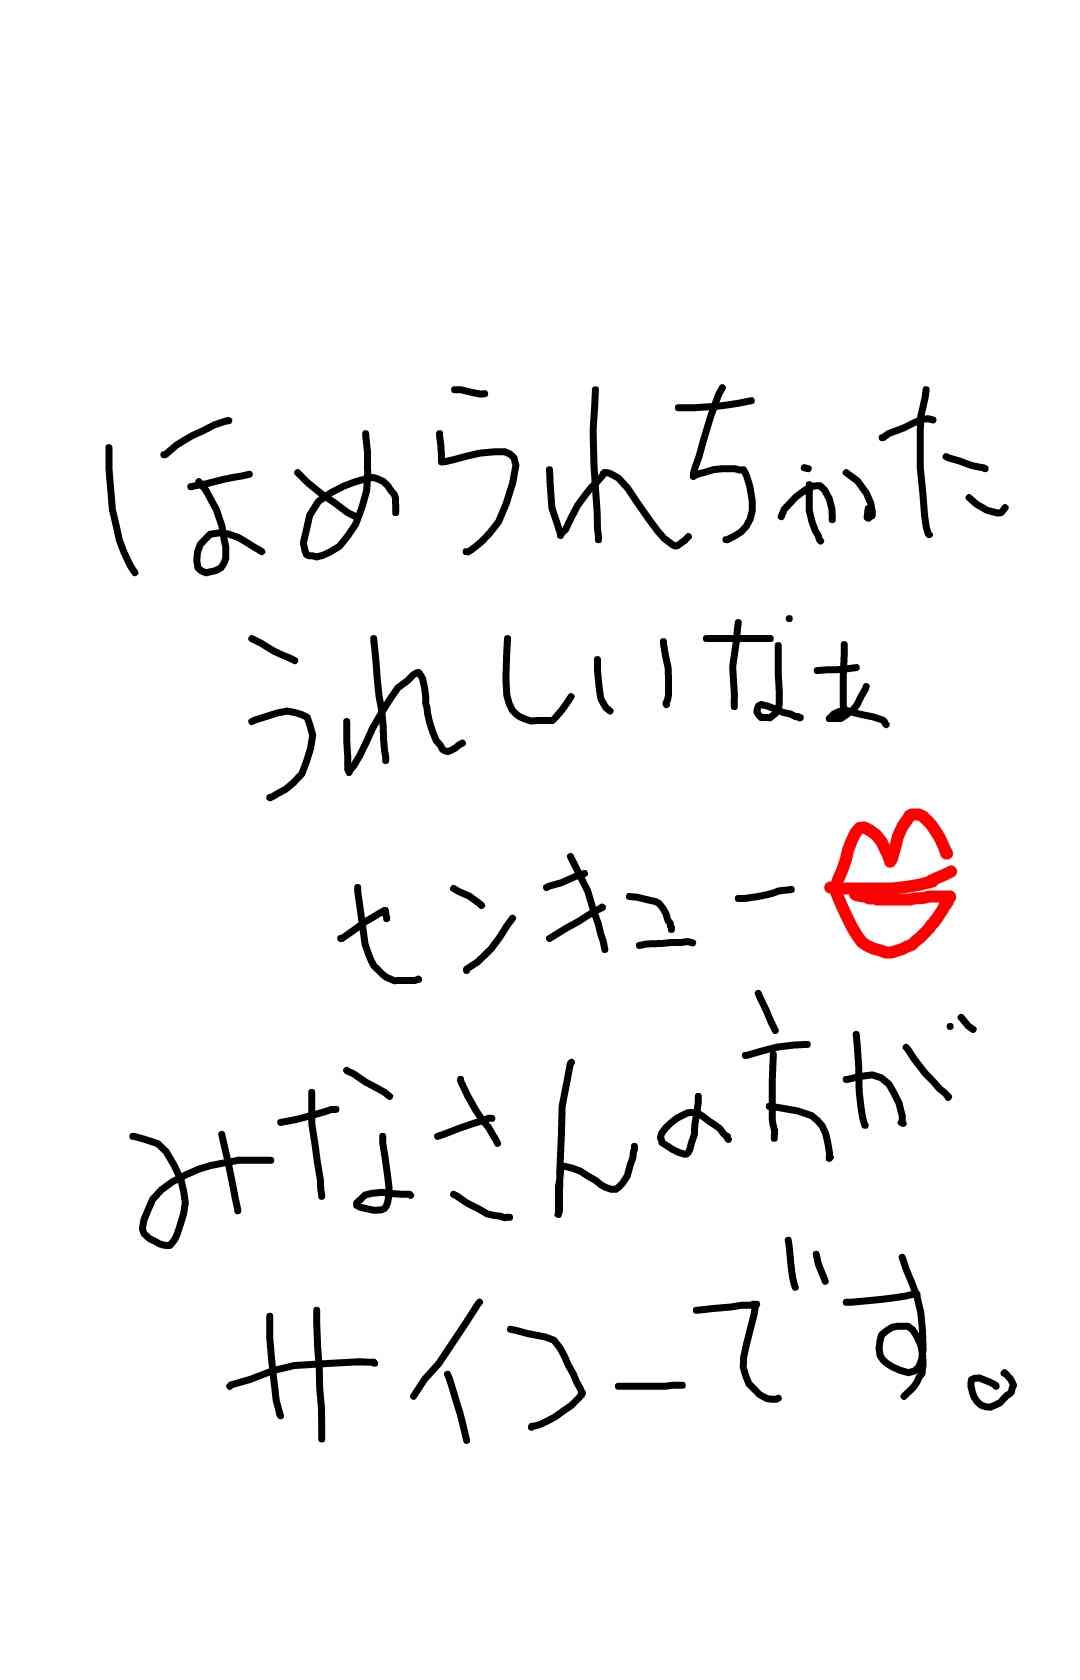 ほめられちゃった
うれしいなぁ
センキュー
みなさんの方が
サイコーです。